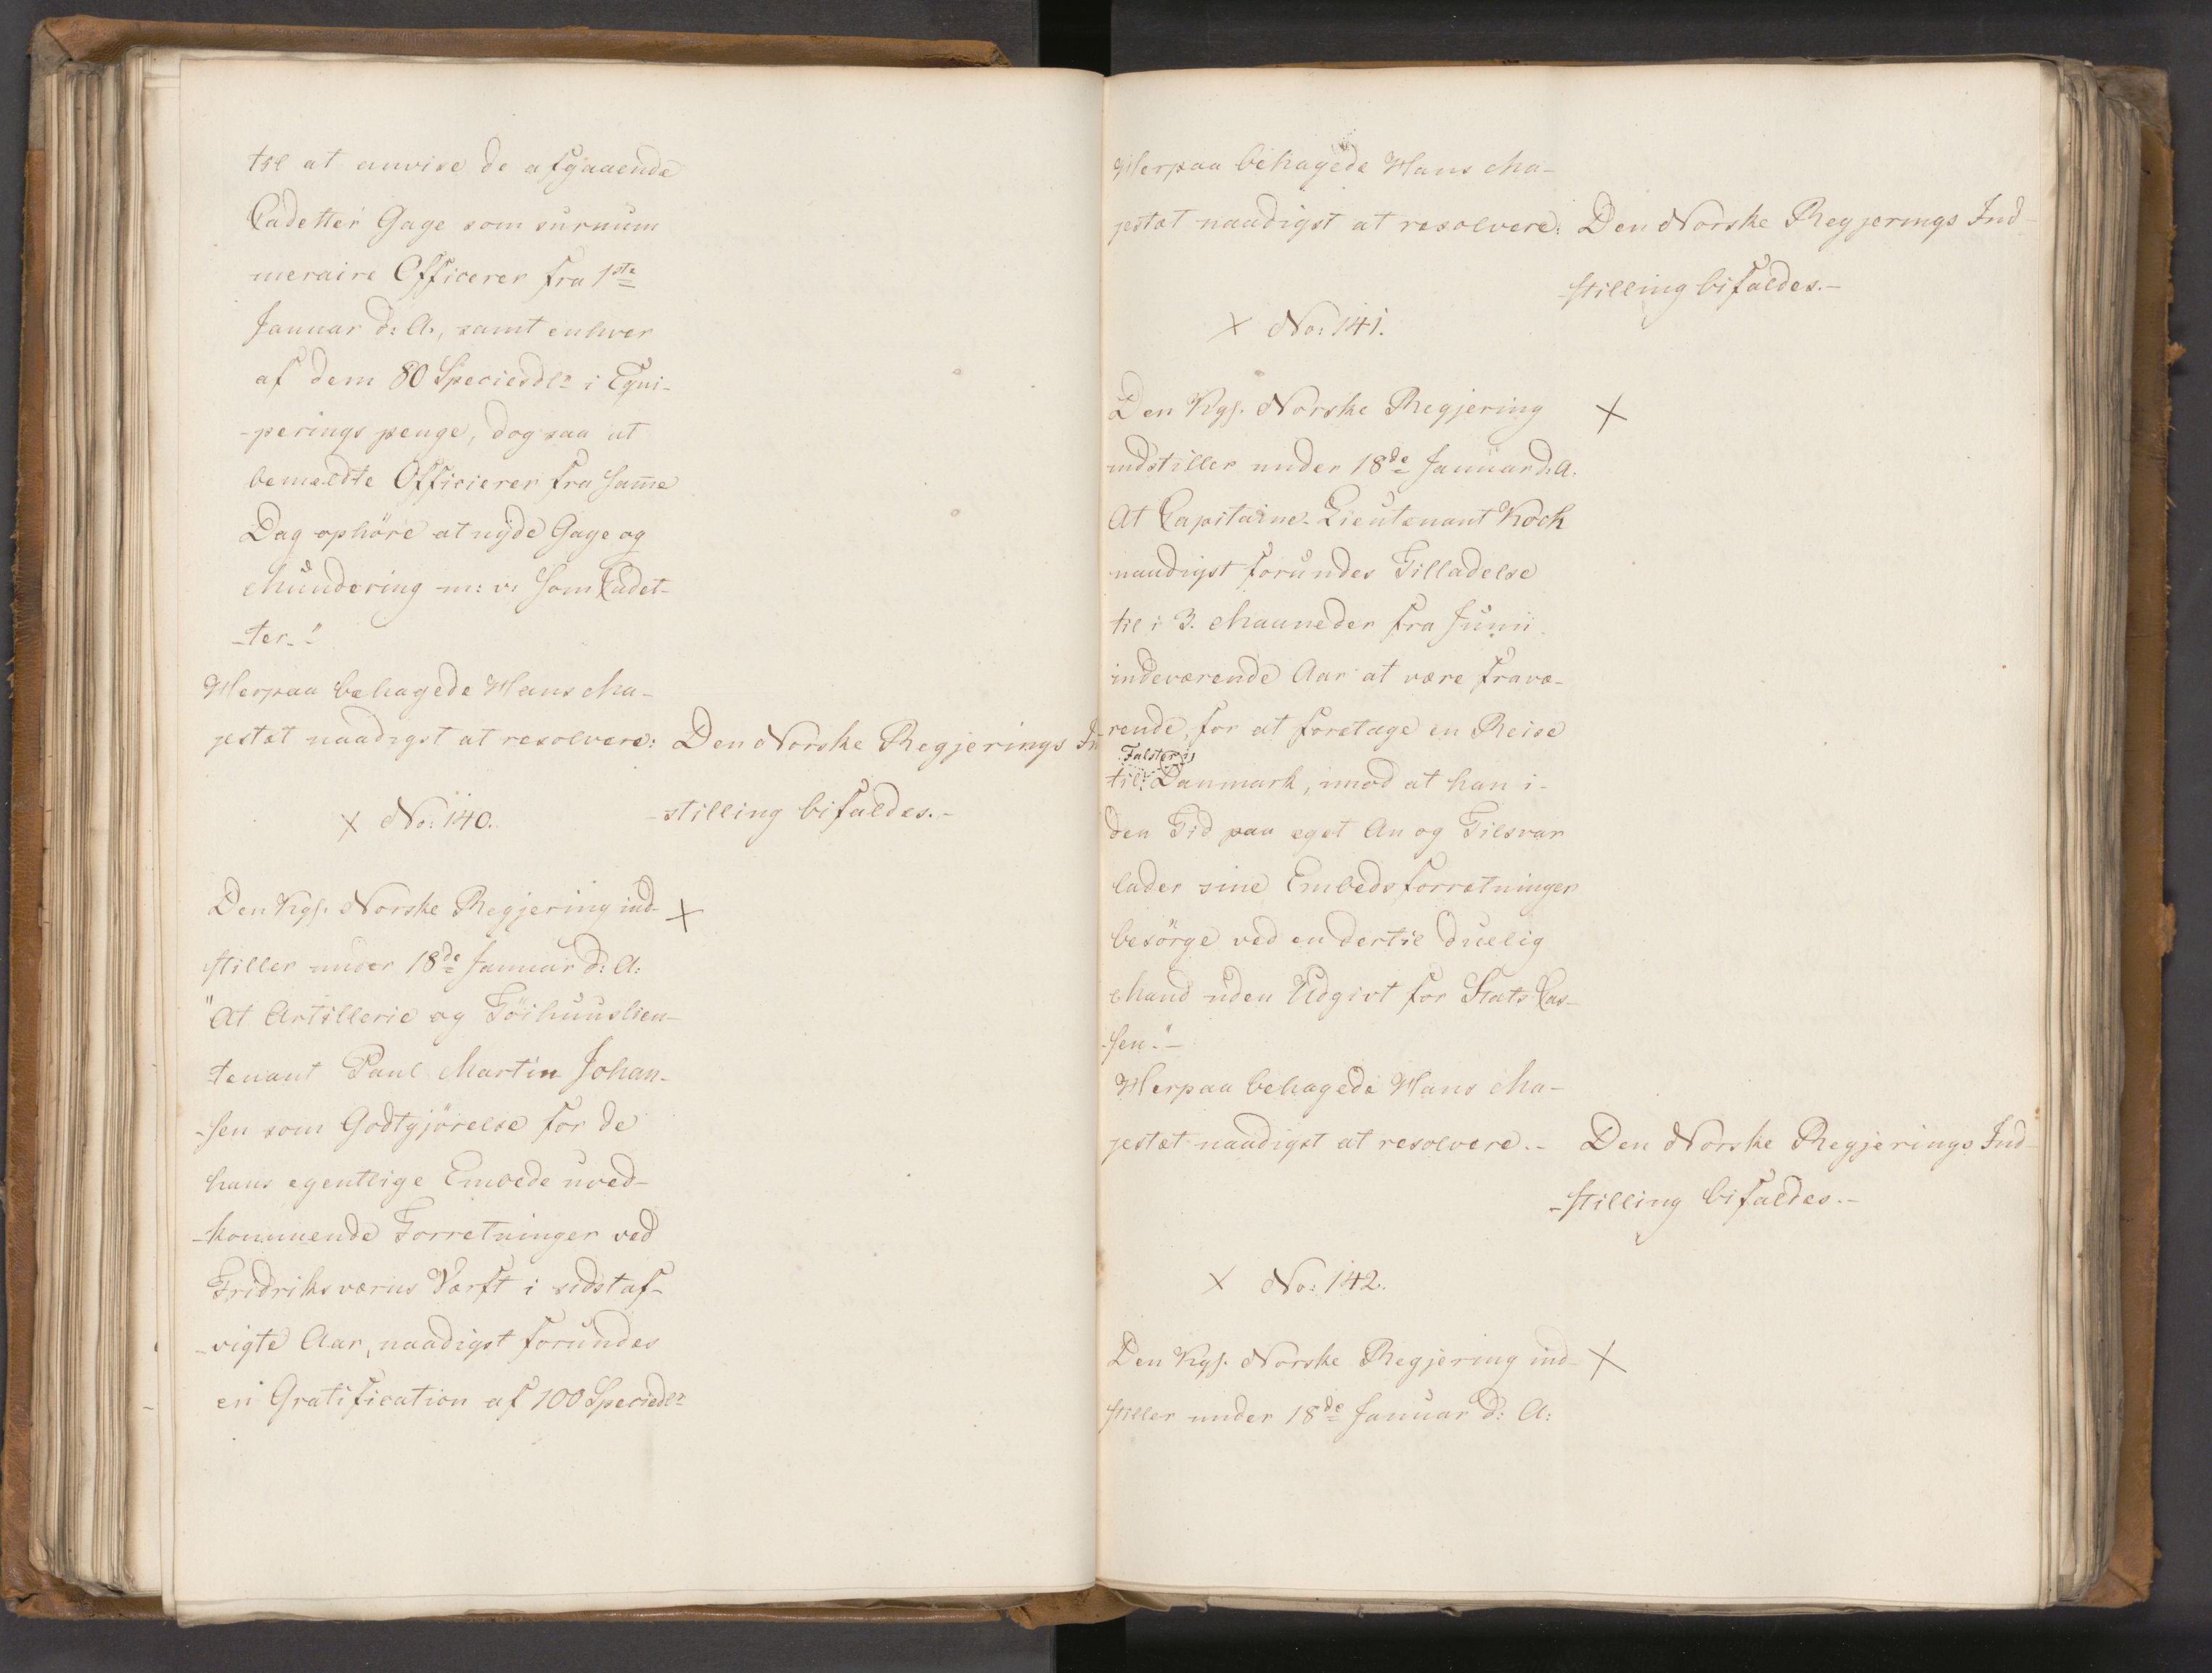 til at anvise de afgaaende
Cadetter Gage som surnum
meraire Officerer fra 1ste
Januar d: A., samt enhver
af dem 80 Speciesdlr i Equi-
-perings penge, dog saa at
bemældte Officierer fra samme
Dag ophöre at nyde Gage og
Mundering m: v. som Cadet-
-ter."
Herpaa behagede Hans Ma-
jestæt naadigst at resolvere: Den Norske Regjerings In
-stilling bifaldes.-
X No: 140.
Den Kgs. Norske Regjering ind- X
stiller under 18de Januar d: A:
"At Artillerie og Töihuuslieu-
tenant Paul Martin Johan-
-sen som Godtgjörelse for de
hans egentlige Embede uved-
-kommende Forretninger ved
Fridriksværns Værft i sidstaf-
-vigte Aar, naadigst forundes
en Gratification af 100 Speciedlr
Herpaa behagede Hans Ma-
jestæt naadigst at resolvere: Den Norske Regjerings Ind-
-stilling bifaldes.-
X No: 141.
Den Kgs. Norske Regjering X
indstiller under 18de Januar d: A.
At Capitaine-Lieutenant Kock
naadigst forundes Tilladelse
til i 3. Maaneder fra Junii
indeværende Aar at være fravæ-
rende, for at foretage en Reise
Falster i
til Danmark, imod at han i-
den Tid paa eget An og Tilsvar
lader sine Embedsforretninger
besörge ved en dertil duelig
Mand uden Udgivt for Stats Cas-
-sen."-
Herpaa behagede Hans Ma-
jestæt naadigst at resolvere.- Den Norske Regjerings Ind-
-stilling bifaldes.-
X No: 142.
Den Kgs. Norske Regjering ind- X
stiller under 18de Januar d: A: